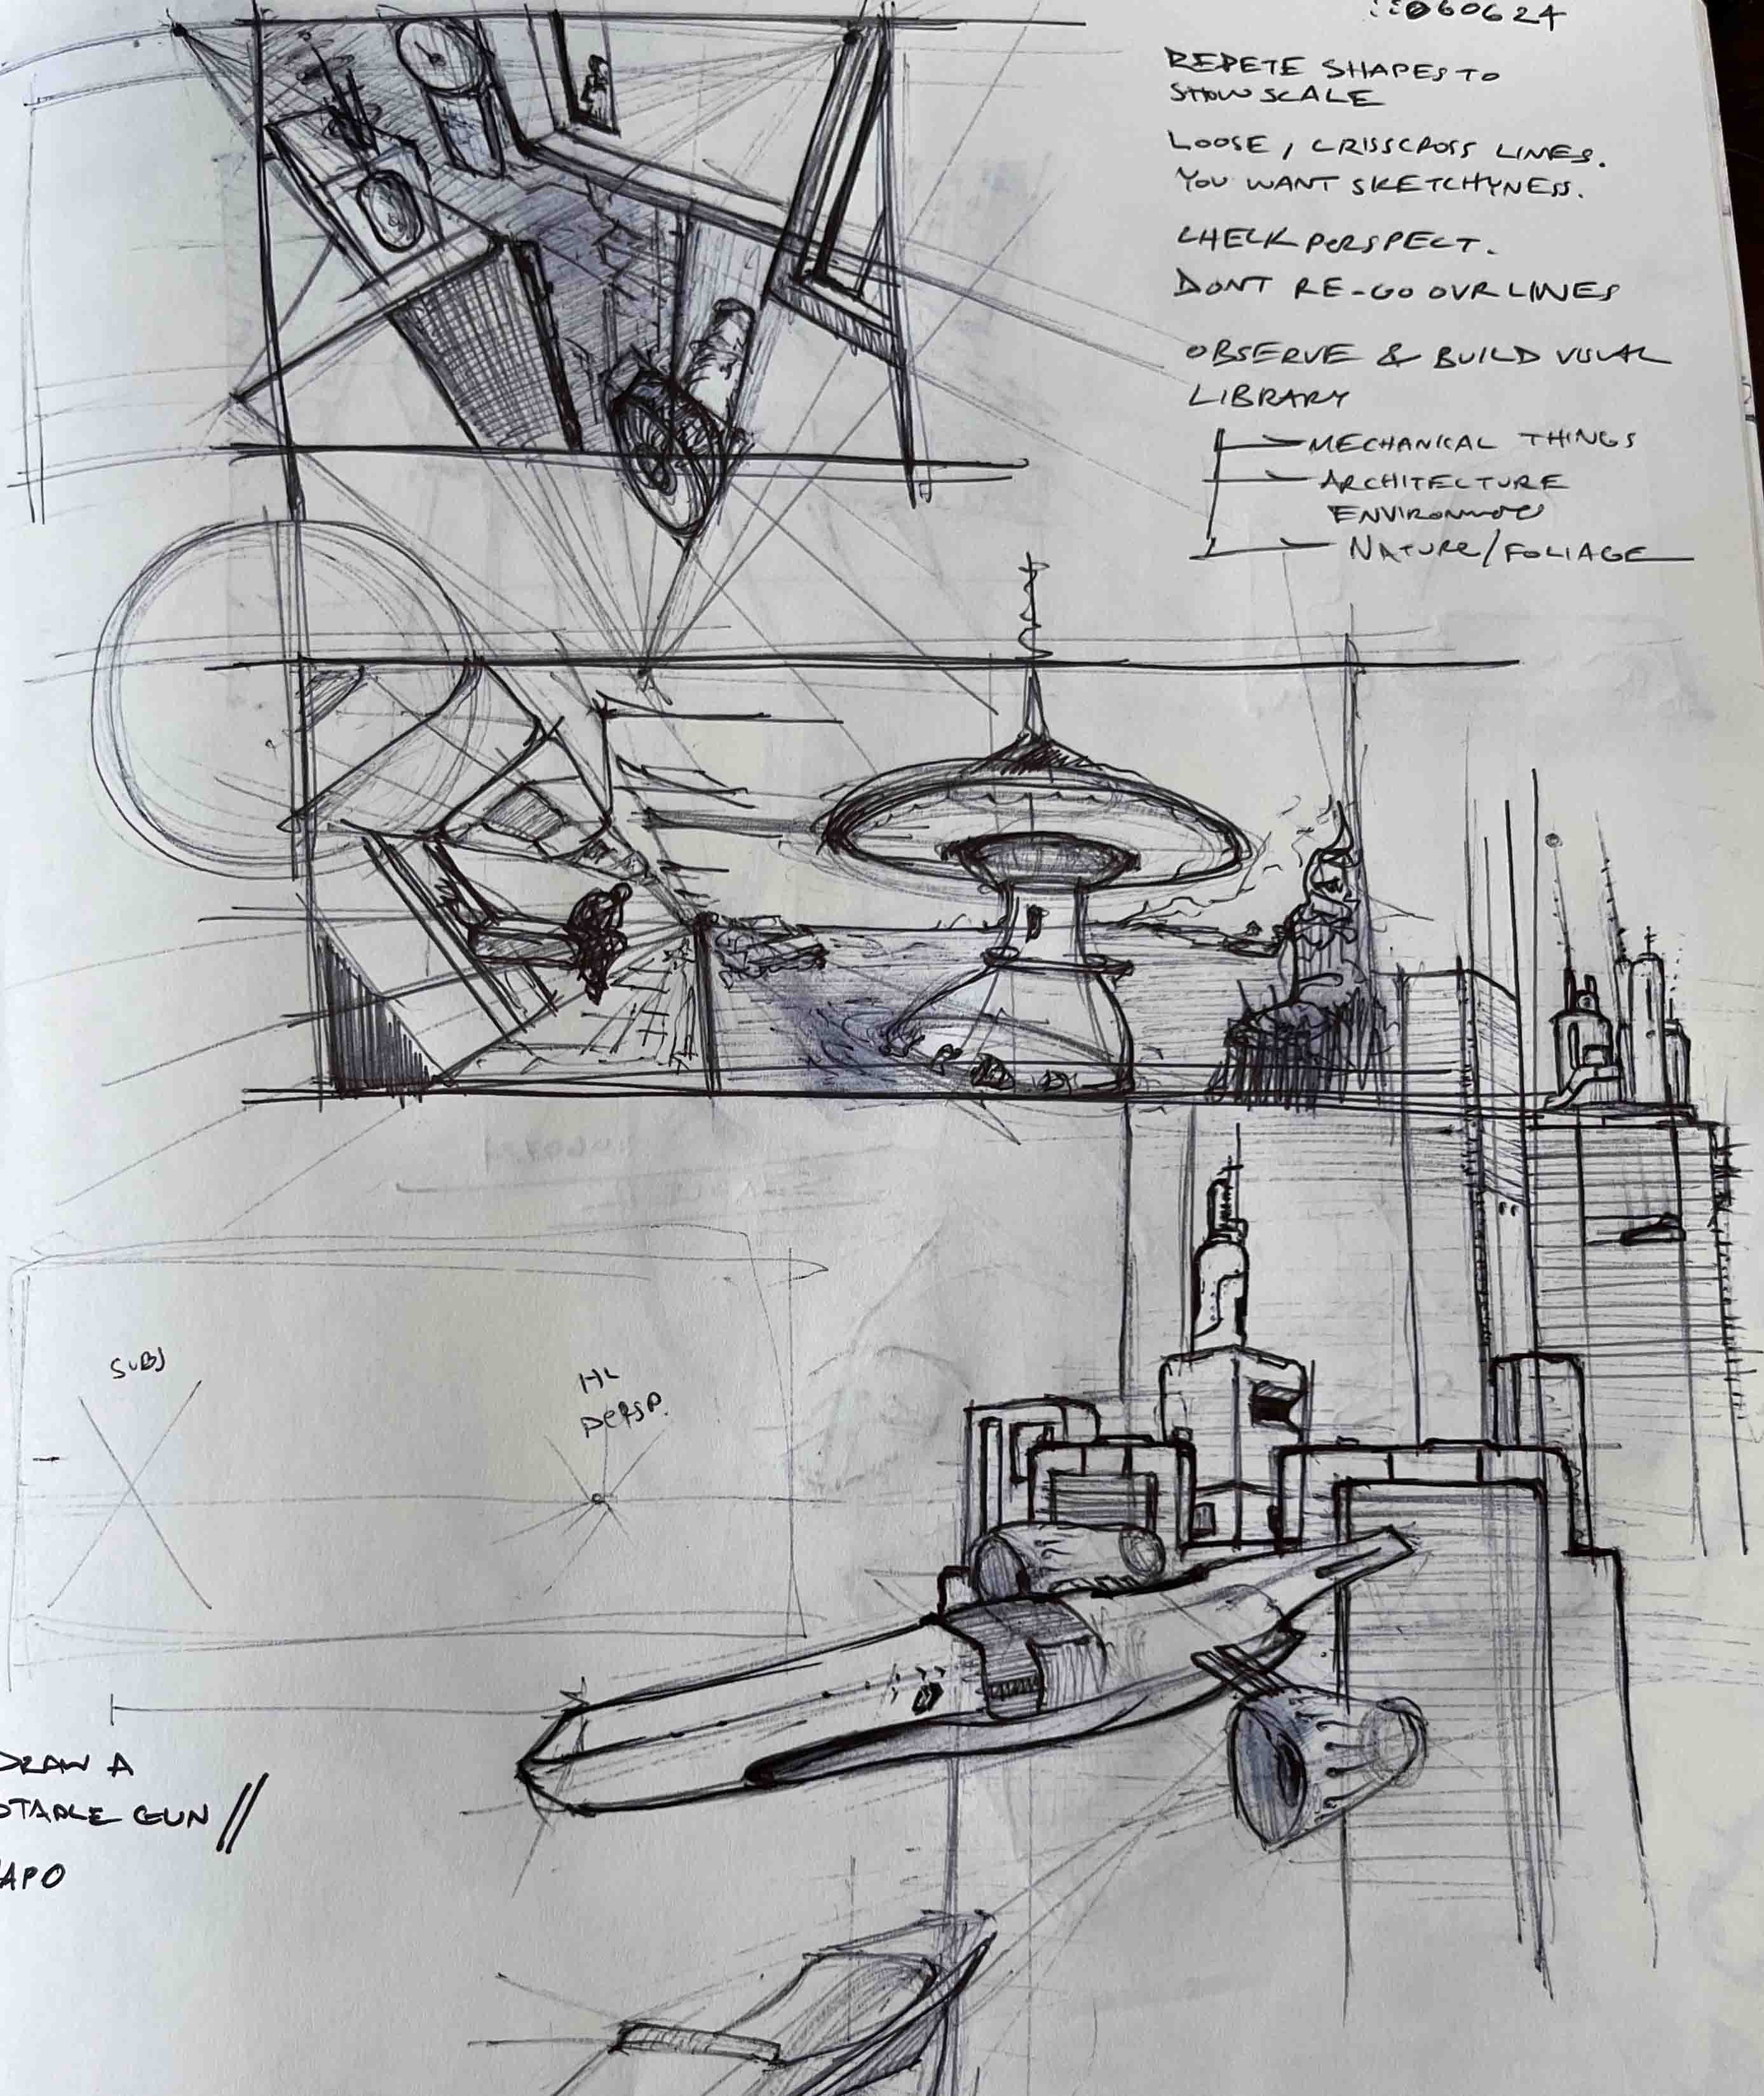 060624
REPETE SHAPES TO
SHOW SCALE
LOOSE, CRISSCROSS LINES.
YOU WANT SKETCHYNESS.
CHECK PERSPECT.
DONT RE-GO OVR LINES
OBSERVE & BUILD VISUAL
LIBRARY
MECHANICAL THINGS
ARCHITECTURE
NATURE/FOLIAGE
SUBJ
HL
PERSP.
DRAW A
OTABLE GUN //
APO